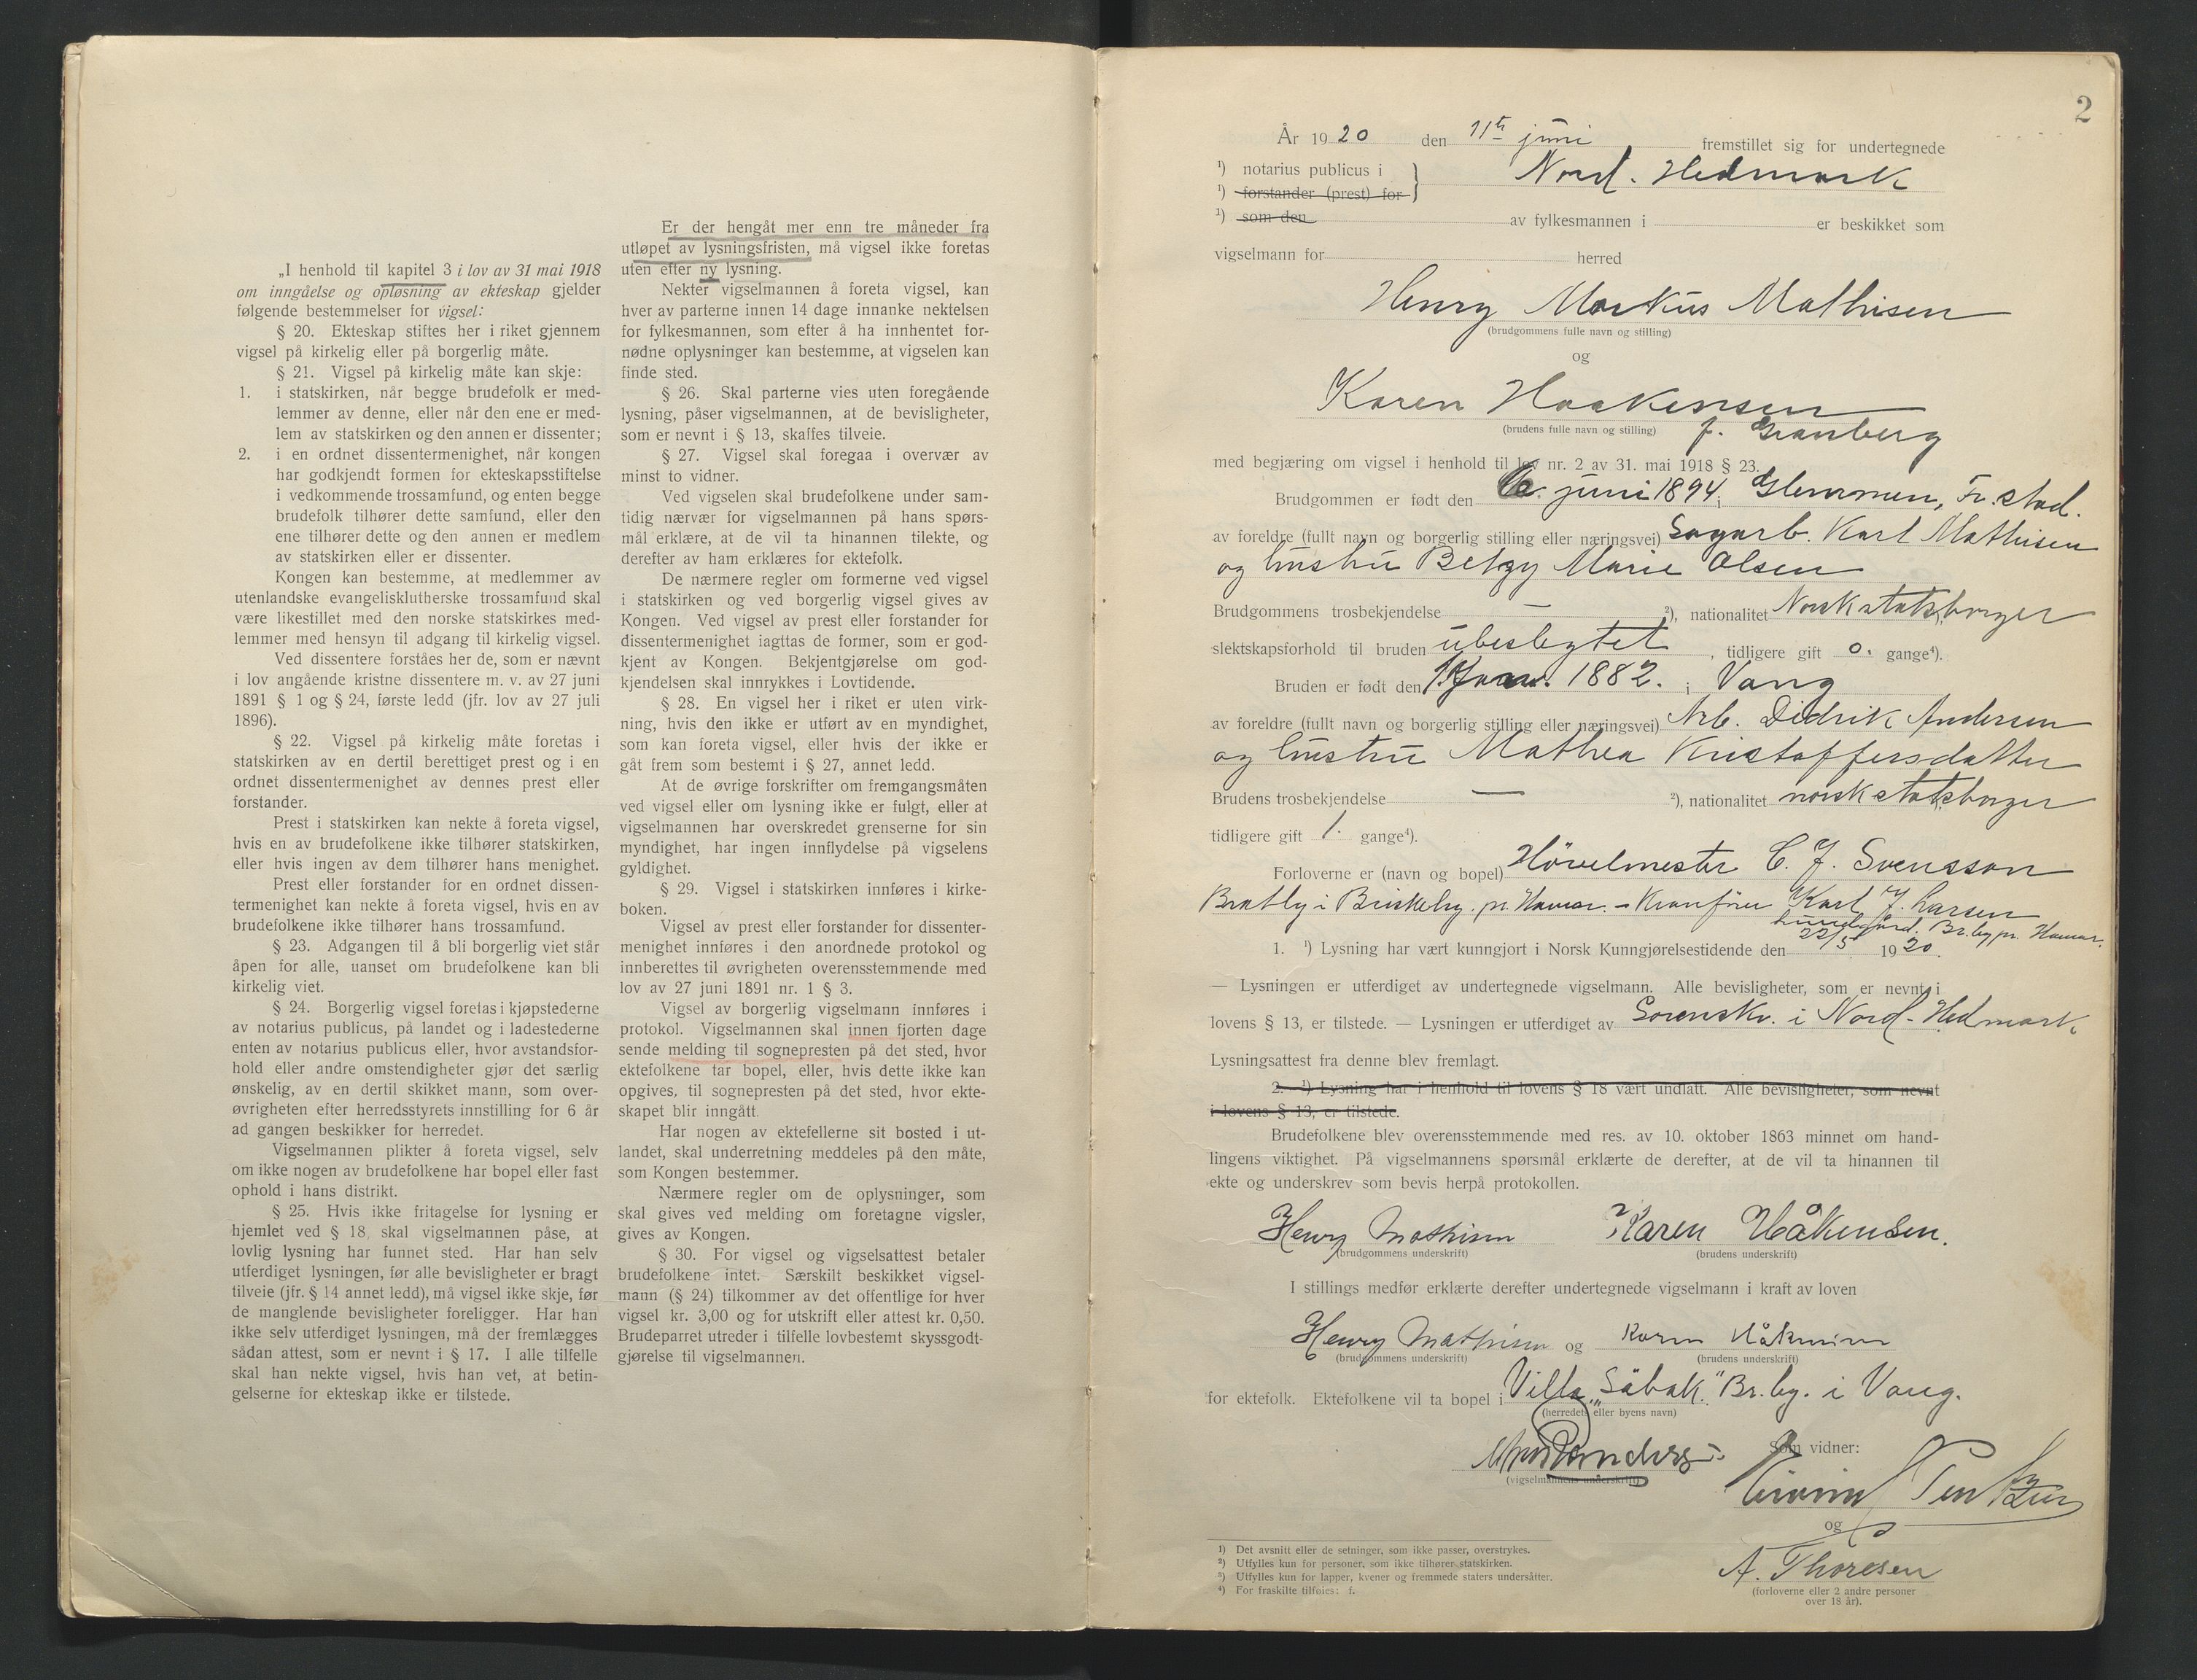 „I henhold til kapitel 3 i lov av 31 mai 1918
om inngåelse og opløsning av ekteskap gjelder
følgende bestemmelser for vigsel:
§ 20. Ekteskap stiftes her i riket gjennem
vigsel på kirkelig eller på borgerlig måte.
§ 21. Vigsel på kirkelig måte kan skje:
1. i statskirken, når begge brudefolk er med-
lemmer av denne, eller når den ene er med-
lem av statskirken og den annen er dissenter;
2. i en ordnet dissentermenighet, når kongen
har godkjendt formen for ekteskapsstiftelse
i vedkommende trossamfund, og enten begge
brudefolk tilhører dette samfund, eller den
ene tilhører dette og den annen er medlem
av statskirken eller er dissenter.
Kongen kan bestemme, at medlemmer av
utenlandske evangelisklutherske trossamfund skal
være likestillet med den norske statskirkes med-
lemmer med hensyn til adgang til kirkelig vigsel.
Ved dissentere forståes her de, som er nævnt
i lov angående kristne dissentere m. v. av 27 juni
1891 § 1 og § 24, første ledd (jfr. lov av 27 juli
1896).
§ 22. Vigsel på kirkelig måte foretas i
statskirken av en dertil berettiget prest og i en
ordnet dissentermenighet av dennes prest eller
forstander.
Prest i statskirken kan nekte å foreta vigsel,
hvis en av brudefolkene ikke tilhører statskirken,
eller hvis ingen av dem tilhører hans menighet.
Prest eller forstander for en ordnet dissen-
termenighet kan nekte å foreta vigsel, hvis en av
brudefolkene ikke tilhører hans trossamfund.
§ 23. Adgangen til å bli borgerlig viet står
åpen for alle, uanset om brudefolkene kan bli
kirkelig viet.
§ 24. Borgerlig vigsel foretas i kjøpstederne
av notarius publicus, på landet og i ladestederne
enten av notarius publicus eller, hvor avstandsfor-
hold eller andre omstendigheter gjør det særlig
ønskelig, av en dertil skikket mann, som over-
øvrigheten efter herredsstyrets innstilling for 6 år
ad gangen beskikker for herredet.
Vigselmannen plikter å foreta vigsel, selv
om ikke nogen av brudefolkene har bopel eller fast
ophold i hans distrikt.
§ 25. Hvis ikke fritagelse for lysning er
hjemlet ved § 18, skal vigselmannen påse, at
lovlig lysning har funnet sted. Har han selv
utferdiget lysningen, før alle bevisligheter er bragt
tilveie (jfr. § 14 annet ledd), må vigsel ikke skje, før
de manglende bevisligheter foreligger. Har han
ikke selv utferdiget lysningen, må der fremlægges
sådan attest, som er nevnt i § 17. I alle tilfelle
skal han nekte vigsel, hvis han vet, at betin-
gelserne for ekteskap ikke er tilstede.
Er der hengåt mer enn tre måneder fra
utløpet av lysningsfristen, må vigsel ikke foretas
uten efter ny lysning.
Nekter vigselmannen å foreta vigsel, kan
hver av parterne innen 14 dage innanke nektelsen
for fylkesmannen, som efter å ha innhentet for-
nødne oplysninger kan bestemme, at vigselen kan
finde sted.
§ 26. Skal parterne vies uten foregående
lysning, påser vigselmannen, at de bevisligheter,
som er nevnt i § 13, skaffes tilveie.
§ 27. Vigsel skal foregaa i overvær av
minst to vidner.
Ved vigselen skal brudefolkene under sam-
tidig nærvær for vigselmannen på hans spørs-
mål erklære, at de vil ta hinannen tilekte, og
derefter av ham erklæres for ektefolk.
De nærmere regler om formerne ved vigsel
i statskirken og ved borgerlig vigsel gives av
Kongen. Ved vigsel av prest eller forstander for
dissentermenighet iagttas de former, som er god-
kjent av Kongen. Bekjentgjørelse om god-
kjendelsen skal innrykkes i Lovtidende.
§ 28. En vigsel her i riket er uten virk-
ning, hvis den ikke er utført av en myndighet,
som kan foreta vigsel, eller hvis der ikke er
gåt frem som bestemt i § 27, annet ledd.
At de øvrige forskrifter om fremgangsmåten
ved vigsel eller om lysning ikke er fulgt, eller at
vigselmannen har overskredet grenserne for sin
myndighet, har ingen innflydelse på vigselens
gyldighet.
§ 29. Vigsel i statskirken innføres i kirke-
boken.
Vigsel av prest eller forstander for dissenter-
menighet innføres i den anordnede protokol og
innberettes til øvrigheten overensstemmende med
lov av 27 juni 1891 nr. 1 § 3.
Vigsel av borgerlig vigselmann innføres i
protokol. Vigselmannen skal innen fjorten dage
sende melding til sognepresten på det sted, hvor
ektefolkene tar bopel, eller, hvis dette ikke kan
opgives, til sognepresten på det sted, hvor ekte-
skapet blir inngått.
Har nogen av ektefellerne sit bosted i ut-
landet, skal underretning meddeles på den måte,
som Kongen bestemmer.
Nærmere regler om de oplysninger, som
skal gives ved melding om foretagne vigsler,
gives av Kongen.
§ 30. For vigsel og vigselsattest betaler
brudefolkene intet. Særskilt beskikket vigsel-
mann (§ 24) tilkommer av det offentlige for hver
vigsel kr. 3,00 og for utskrift eller attest kr. 0,50.
Brudeparret utreder i tilfelle lovbestemt skyssgodt-
gjørelse til vigselmannen.
2
År 1920 den 11te juni fremstillet sig for undertegnede
¹) notarius publicus i } Nord. Hedmark
¹) forstander (prest) for
¹) som den av fylkesmannen i er beskikket som
vigselmann for herred
Henry Markus Mathisen
(brudgommens fulle navn og stilling)
og
Karen Haakensen
(brudens fulle navn og stilling) f. Granberg
med begjæring om vigsel i henhold til lov nr. 2 av 31. mai 1918 § 23.
Brudgommen er født den juni 1894 i Glemmen, Fr.stad.
av foreldre (fullt navn og borgerlig stilling eller næringsvei) Sagarb. Karl Mathisen
og hustru Betzy Marie Olsen
Brudgommens trosbekjendelse — ²), nationalitet Norsk statsborger
slektskapsforhold til bruden ubeslegtet, tidligere gift 0. gange⁴).
Bruden er født den 1882. i Vang
av foreldre (fullt navn og borgerlig stilling eller næringsvei) Arb. Didrik Andersen
og hustru Mathea Kristoffersdatter
Brudens trosbekjendelse — ²), nationalitet norsk statsborger
tidligere gift 1. gange⁴).
Forloverne er (navn og bopel) Hövelmester C. J. Svensson
Bratly i Briskeby. pr. Hamar. – Kranfører Karl J. Larsen
Lundgård. Br.by pr. Hamar.
1. ¹) Lysning har vært kunngjort i Norsk Kunngjørelsestidende den 22/5 1920.
— Lysningen er utferdiget av undertegnede vigselmann. Alle bevisligheter, som er nevnt i
lovens § 13, er tilstede. — Lysningen er utferdiget av Sorenskr. i Nord-Hedmark,
Lysningsattest fra denne blev fremlagt.
2. ¹) Lysning har i henhold til lovens § 18 vært undlatt. Alle bevisligheter, som nevnt
i lovens § 13, er tilstede.
Brudefolkene blev overensstemmende med res. av 10. oktober 1863 minnet om hand-
lingens viktighet. På vigselmannens spørsmål erklærte de derefter, at de vil ta hinannen til
ekte og underskrev som bevis herpå protokollen.
Henry Mathisen Karen Håkensen.
(brudgommens underskrift) (brudens underskrift)
I stillings medfør erklærte derefter undertegnede vigselmann i kraft av loven
Henry Mathisen og Karen Håkensen
(brudgommens underskrift) (brudens underskrift)
for ektefolk. Ektefolkene vil ta bopel i Villa „Säbak." Br.by. i Vang.
(herredets eller byens navn)
Som vidner:
(vigselmannens underskrift)
og
A. Thoresen
(forloverne eller 2 andre personer
over 18 år).
¹) Det avsnitt eller de setninger, som ikke passer, overstrykes.
²) Utfylles kun for personer, som ikke tilhører statskirken.
³) Utfylles kun for lapper, kvener og fremmede staters undersåtter.
⁴) For fraskilte tilføies: f.